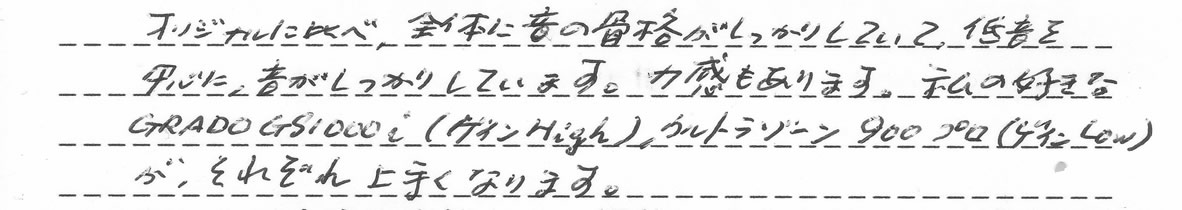 オリジナルに比べ、全体に音の骨格がしっかりしていて、低音を
中心に、音がしっかりしています。力感もあります。私の好きな
GRADO GS1000i (ゲインHigh)、ウルトラゾーン 900プロ(ゲインLow)
が、それぞれ上手くなります。